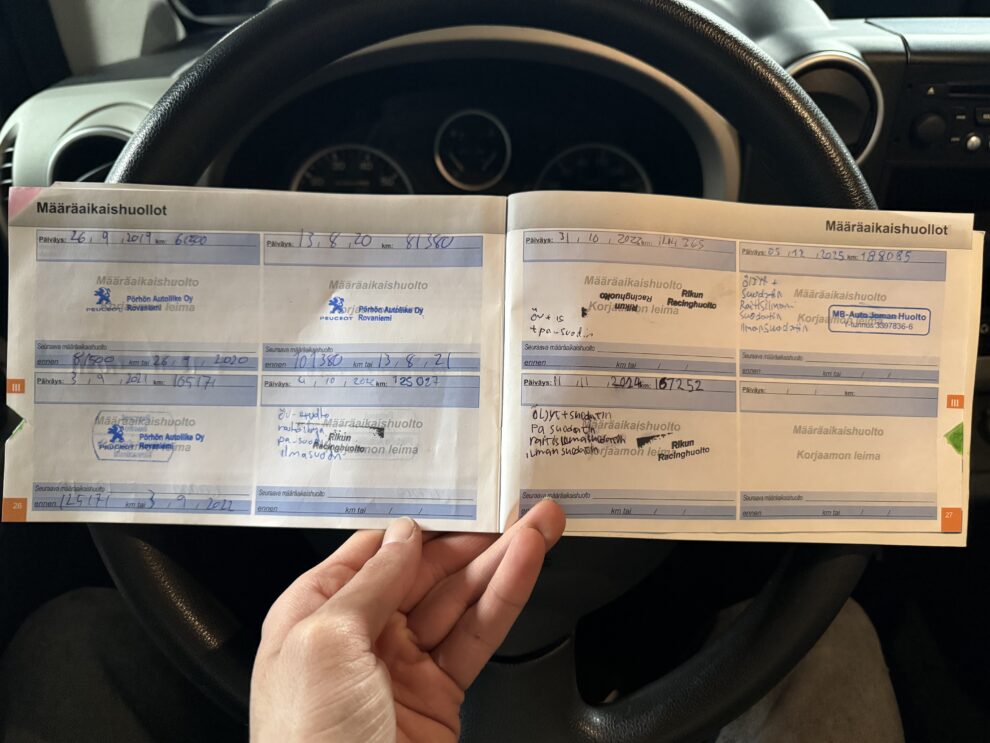 Määräaikaishuollot
Päiväys: 26 . 9 . 2019 km: 61500
Määräaikaishuolto
PEUGEOT Pörhön Autoliike Oy
Rovaniemi
Korjaamon leima
Seuraava määräaikaishuolto
ennen 81500 km tai 26 . 9 . 2020
Päiväys: 13 . 8 . 20 km: 81380
Määräaikaishuolto
PEUGEOT Pörhön Autoliike Oy
Rovaniemi
Korjaamon leima
Seuraava määräaikaishuolto
ennen 101380 km tai 13 . 8 . 21
Päiväys: 3 . 9 . 2021 km: 105171
Määräaikaishuolto
PEUGEOT Pörhön Autoliike Oy
Rovaniemi
Korjaamon leima
Seuraava määräaikaishuolto
ennen 125171 km tai 3 . 9 . 2022
Päiväys: 4 . 10 . 2022 km: 125027
Määräaikaishuolto
pa-suodin
ilmasuodin
Rikun
Racinghuolto
Korjaamon leima
Seuraava määräaikaishuolto
ennen km tai / /
III
26
Määräaikaishuollot
Päiväys: 31 . 10 . 2023 km:
Määräaikaishuolto
Rikun
Racinghuolto
Rikun
Racinghuolto
Korjaamon leima
+ pa-suodin
Seuraava määräaikaishuolto
ennen km tai / /
Päiväys: 05 . 12 . 2025 km: 188085
Määräaikaishuolto
Öljyt +
Suodatin
Raitisilman
Suodatin
Ilmansuodatin
MB-Auto Joman Huolto
Y-tunnus 3397836-6
Korjaamon leima
Seuraava määräaikaishuolto
ennen km tai / /
Päiväys: 11 . 11 . 2024 167252
Määräaikaishuolto
Öljyt + suodatin
Pa suodatin
raitisilmansuodatin
ilman suodatin
Rikun
Racinghuolto
Korjaamon leima
Seuraava määräaikaishuolto
ennen km tai / /
Päiväys: / / km:
Määräaikaishuolto
Korjaamon leima
Seuraava määräaikaishuolto
ennen km tai / /
III
27